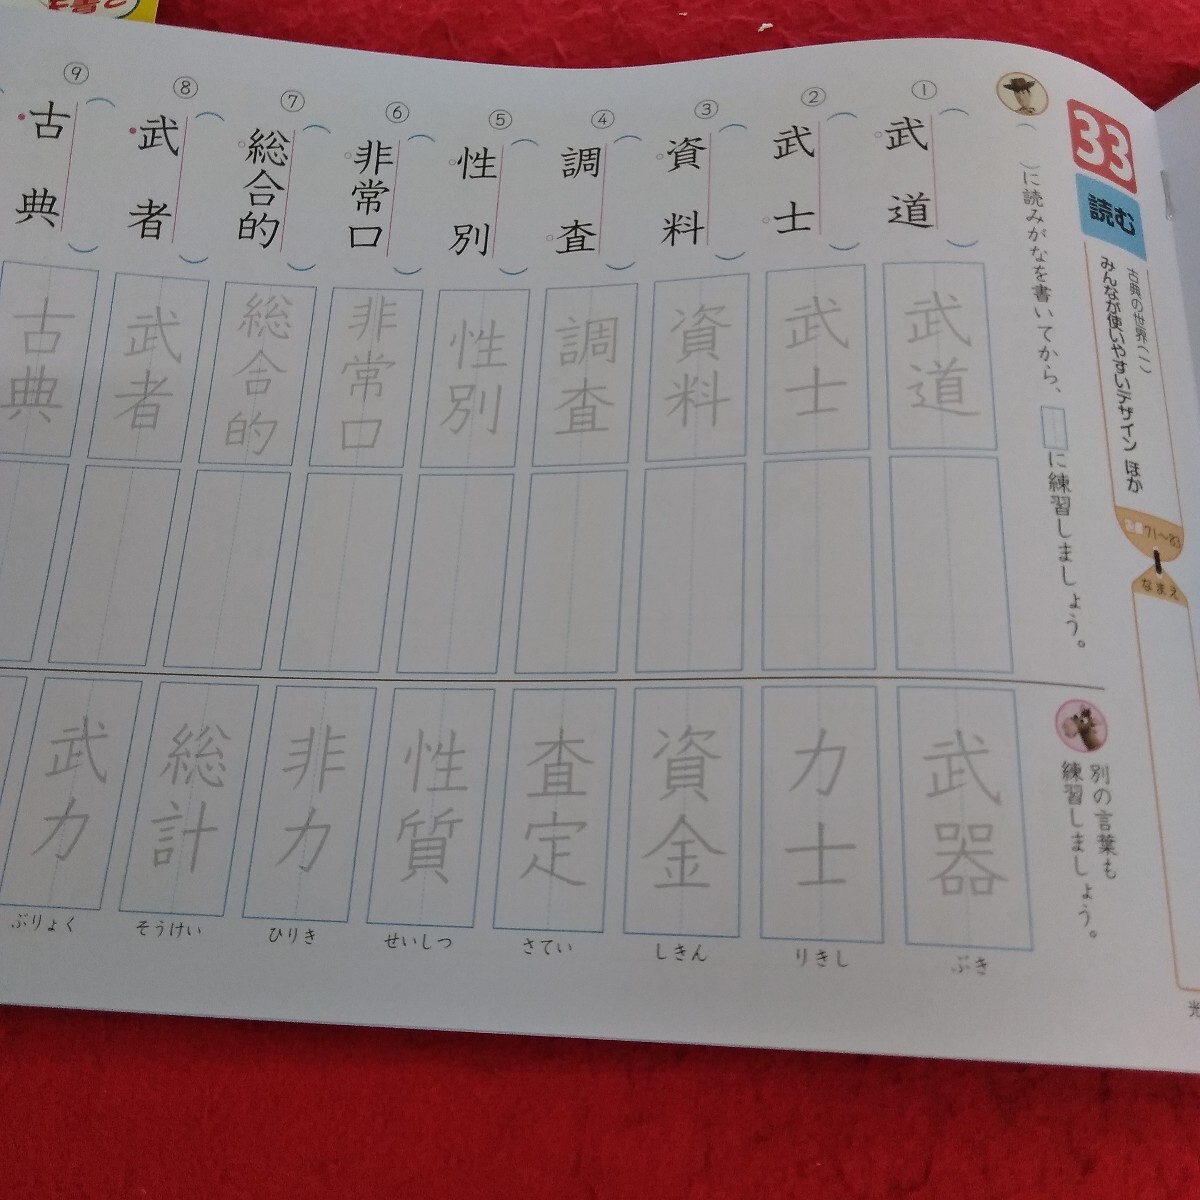 33
読む
古典の世界(一)
みんなが使いやすいデザイン ほか
71～83
なまえ
( )に読みがなを書いてから、□に練習しましょう。
別の言葉も
練習しましょう。
① 武道
② 武士
③ 資料
④ 調査
⑤ 性別
⑥ 非常口
⑦ 総合的
⑧ 武者
⑨ 古典
武道
武士
資料
調査
性別
非常口
総合的
武者
古典
武器
ぶき
力士
りきし
資金
しきん
査定
さてい
性質
せいしつ
非力
ひりき
総計
そうけい
武力
ぶりょく
光